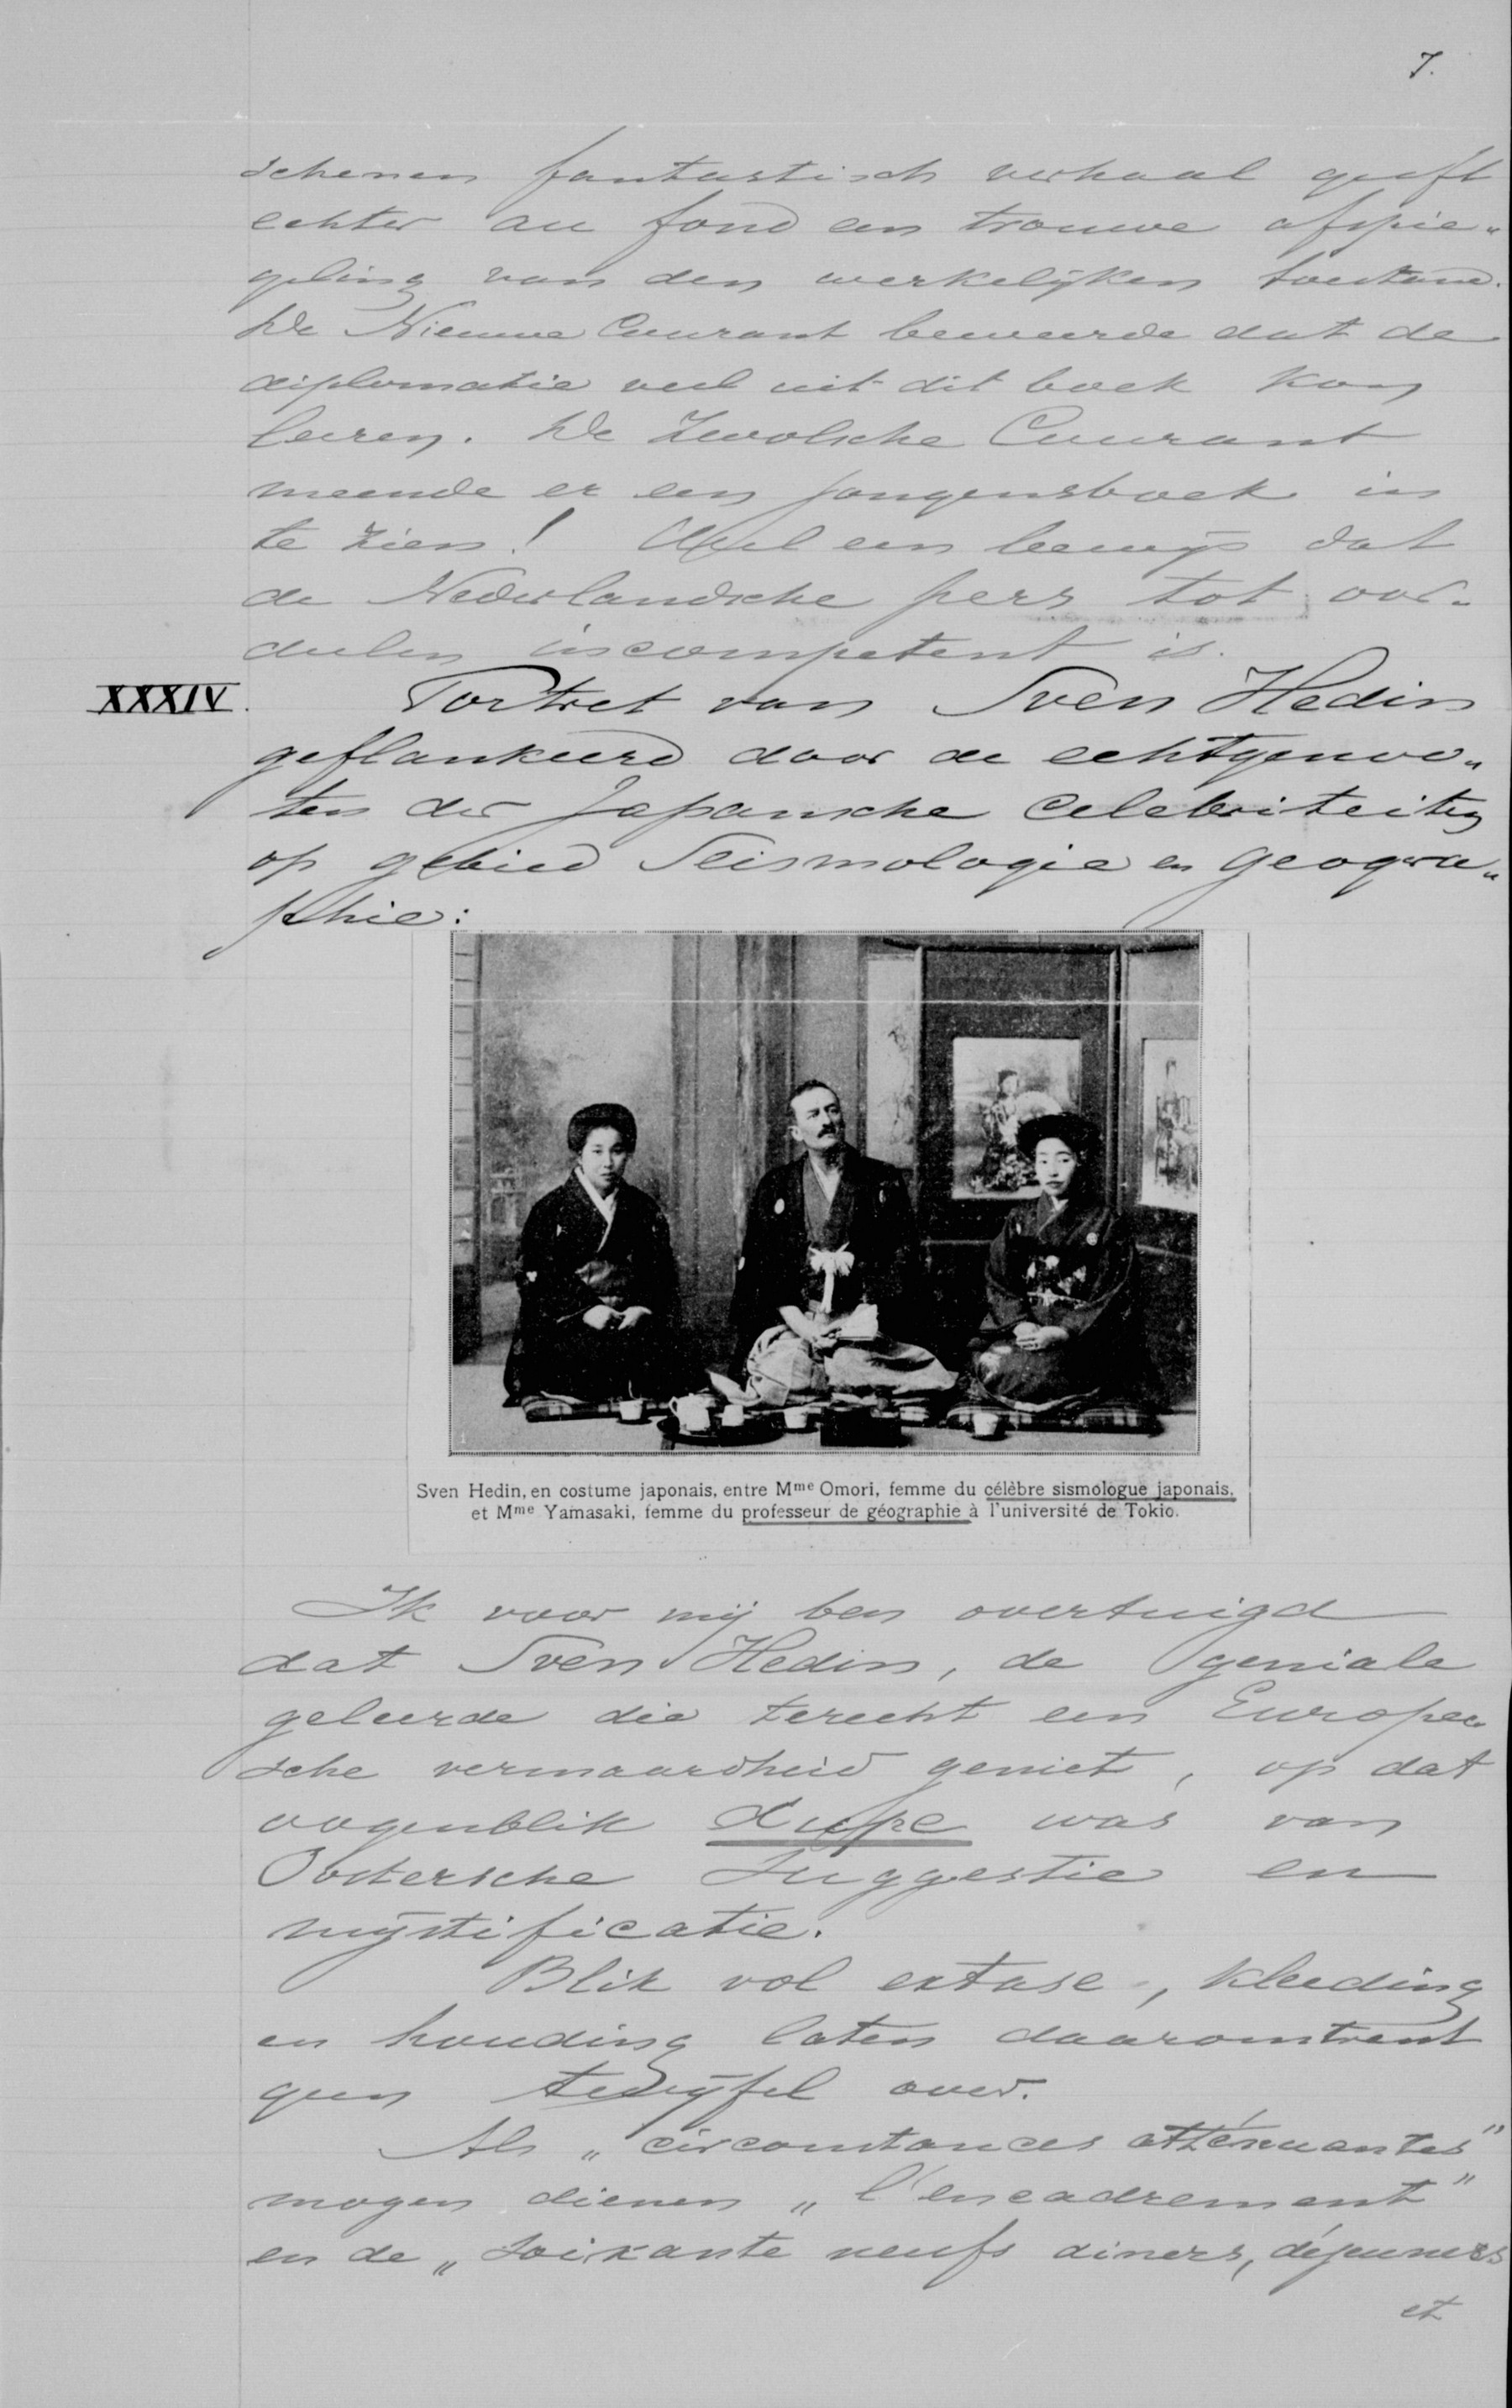 7.
schenen fantastisch verhaal geeft
echter au fond een trouwe afspie„
geling van den werkelijken toestand.
De Nieuwe Courant beweerde dat de
diplomatie veel uit dit boek kon
leeren. De Zwolsche Courant
meende er een jongensboek in
te zien! Wel een bewijs dat
de Nederlandsche pers tot oor„
deelen incompetent is.
XXXIV. Portret van Sven Hedin
geflankeerd door de echtgenoo„
ten der Japansche celebriteiten
op gebied Seismologie en geogra„
phie:
Sven Hedin, en costume japonais, entre Mme Omori, femme du célèbre sismologue japonais,
et Mme Yamasaki, femme du professeur de géographie à l'université de Tokio.
Ik voor mij ben overtuigd
dat Sven Hedin, de geniale
geleerde die terecht een Europee„
sche vermaardheid geniet, op dat
oogenblik dupe was van
Oostersche suggestie en
mystificatie.
Blik vol extase, kleeding
en houding laten daaromtrent
geen twijfel over.
Als „circonstances atténuantes"
mogen dienen „l'encadrement"
en de „soixante neufs diners, déjeuners
et